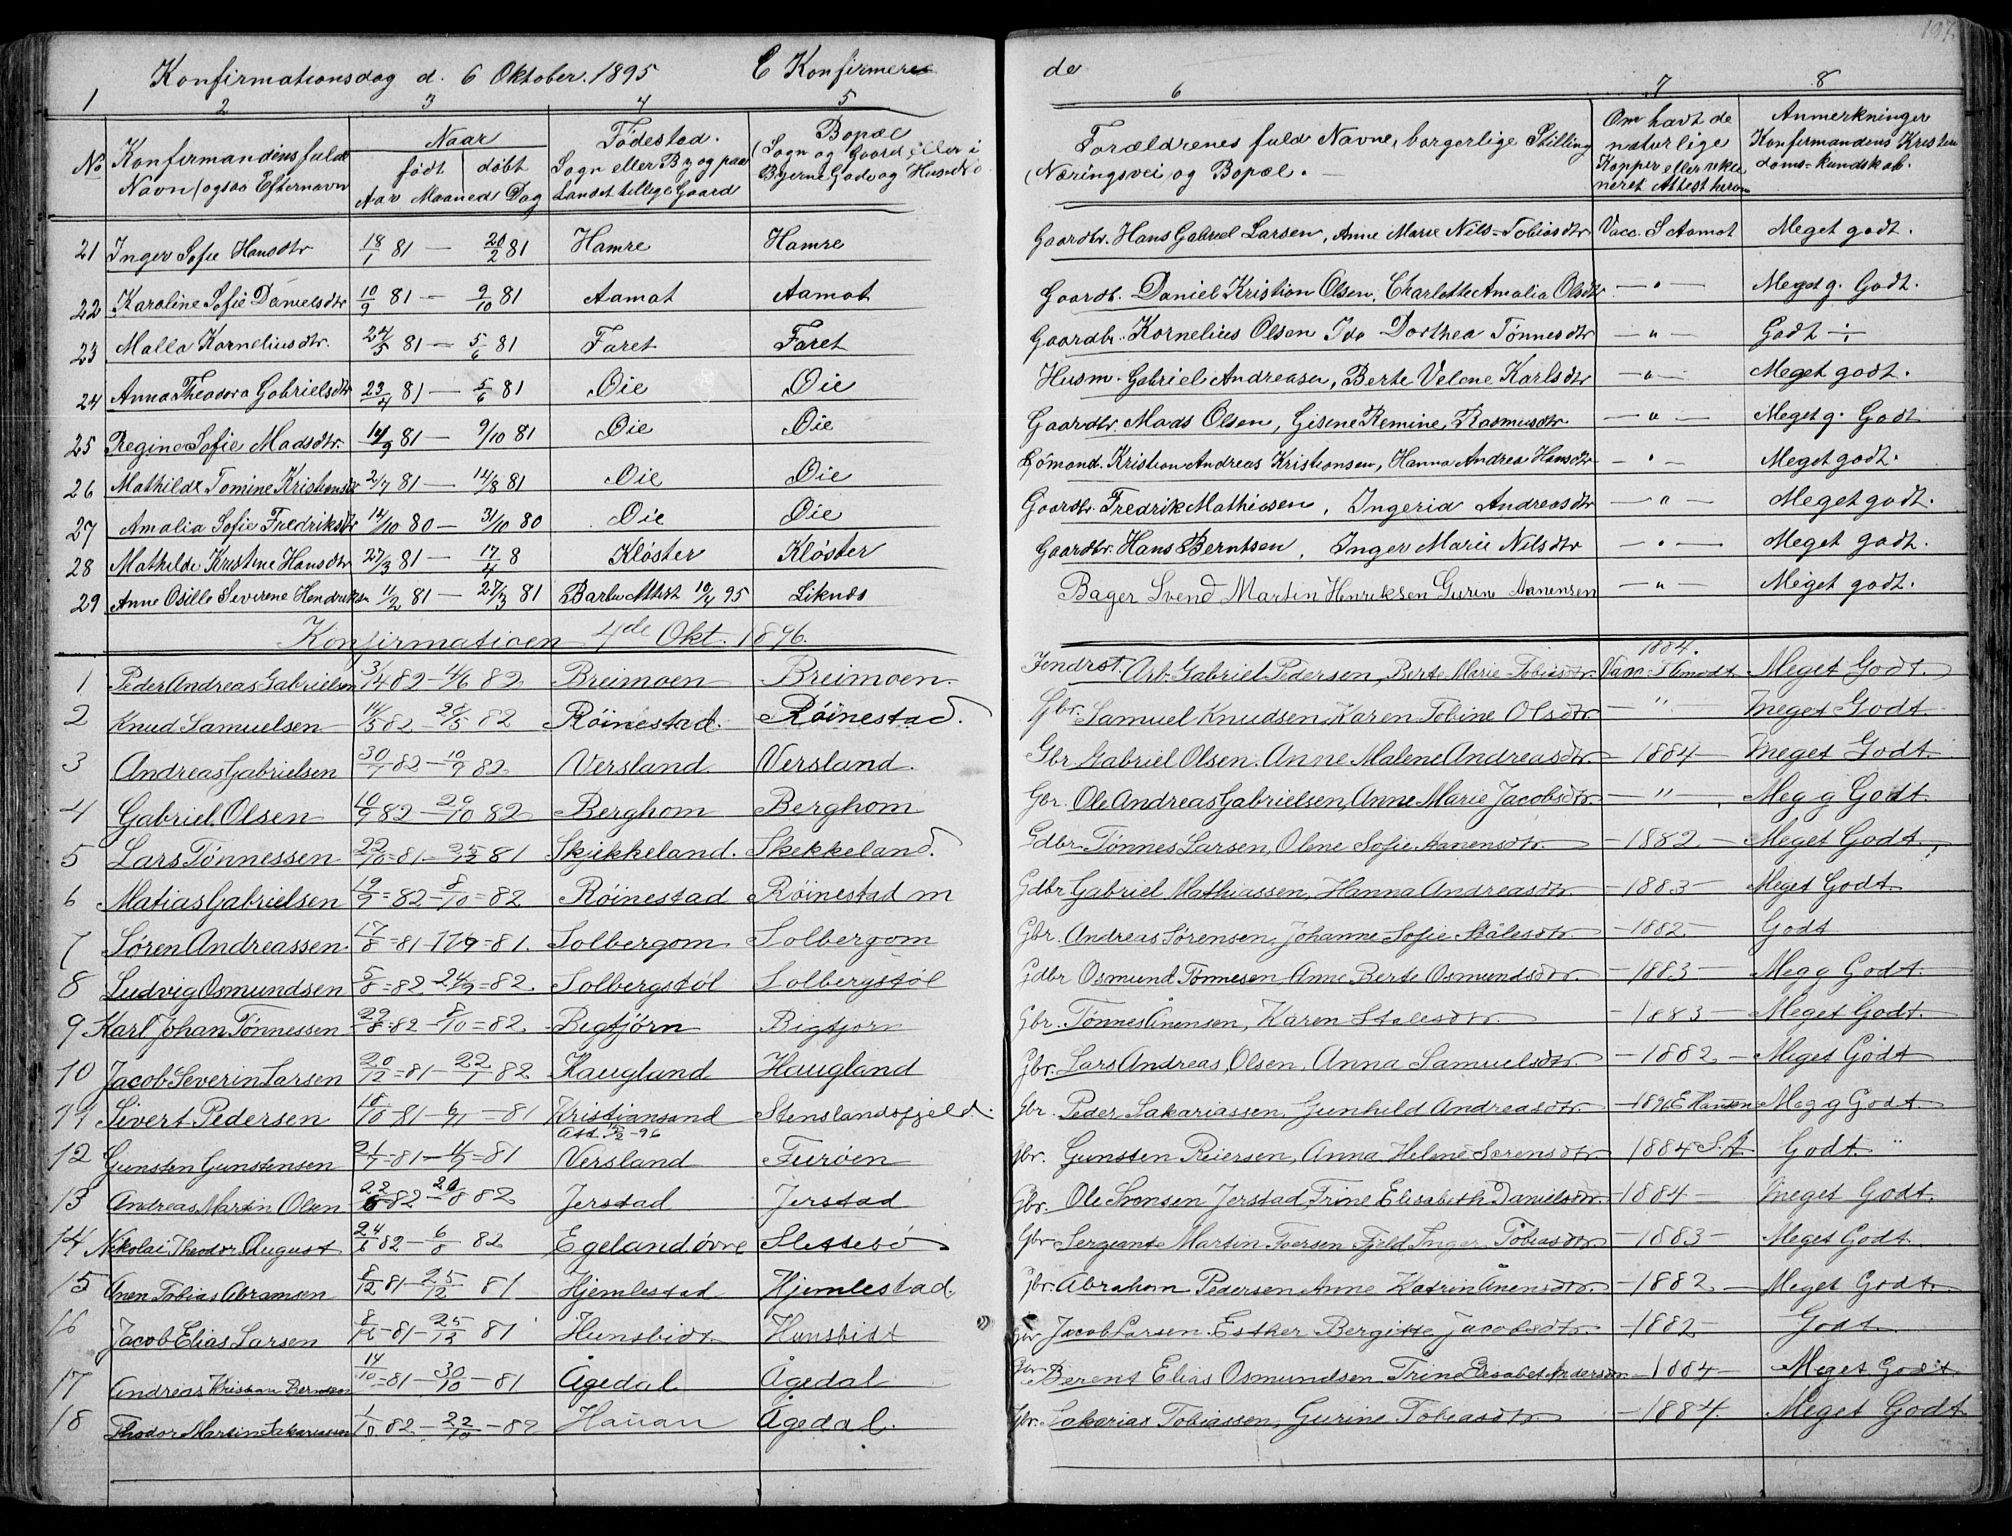 197.
Konfirmationsdag d. 6 Oktober. 1895 C Konfirmere de
1 2 3 4 5 6 7 8
No Konfirmandens fulde Navn (ogsaa Efternavn Naar født døbt Aar Maaned Dag Fødestad. Sogn eller By og paa Landet tillige Gaard Bopæl (Sogn og Gaard, eller i Byerne Gade og Hus No Forældrenes fuld Navne, borgerlige Stilling (Næringsvei og Bopæl. Om havt de naturlige Kopper eller Attest herom Anmerkninger Konfirmandens Kristendoms-kundskab.
21 Inger Sofie Hansdtr 18/1 81 — 20/2 81 Hamre Hamre Gaardbr. Hans Gabriel Larsen, Anne Marie Nils-Tobiasdtr Vacc. S Aamot Meget godt.
22 Karoline Sofie Danielsdtr 10/9 81 — 9/10 81 Aamot Aamot Gaardb. Daniel Kristian Olsen, Charlotte Amalia Olsdtr — " — Meget g. Godt.
23 Malla Korneliusdtr. 22/5 81 — 5/6 81 Faret Faret Gaardbr. Kornelius Olsen Ida Dorthea Tønnesdtr — " — Godt ÷
24 Anna Theodora Gabrielsdtr 23/4 81 — 5/6 81 Øie Øie Husm. Gabriel Andreasen, Berte Velene Karlsdtr — " — Meget godt.
25 Regine Sofie Madsdtr. 14/9 81 — 9/10 81 Øie Øie Gaardbr. Mads Olsen, Gisene Remine, Rasmusdtr — " — Meget g. Godt
26 Mathilde Tomine Kristiansdtr 2/7 81 — 14/8 81 Øie Øie Sømand. Kristian Andreas Kristiansen, Hanna Andrea Hansdtr — " — Meget godt.
27 Amalia Sofie Fredriksdtr 14/10 80 — 31/10 80 Øie Øie Gaardbr. Fredrik Mathiasen, Ingeria Andreasdtr — " — Meget godt.
28 Mathilde Kristine Hansdtr 27/3 81 — 17/4 8 Kløster Kløster Gaardbr. Hans Berntsen, Inger Marie Nilsdtr — " — Meget godt.
29 Anne Osille Severene Hendriksen 11/2 81 — 27/3 81 Attest 10/4 95 Liknæs Bager Svend Martin Henriksen Gurine Aanensen — " — Meget godt.
Konfirmationen 4de Okt. 1896.
1 Peder Andreas Gabrielsen 3/4 82 — 4/6 82 Breimoen Breimoen. Arb. Gabriel Pedersen, Berte Marie Tobiasdtr. 1884. Vacc. S Aamodt Meget Godt.
2 Knud Samuelsen 14/5 82 — 28/5 82 Røinestad. Røinestad. Gbr. Samuel Knudsen, Karen Tobine Olsdtr — " — Meget Godt
3 Andreas Gabrielsen 30/7 82 — 10/9 82 Versland Versland. Gbr Gabriel Olsen. Anne Malene Andreasdtr — 1884 — Meget Godt
4 Gabriel Olsen 10/9 82 — 29/10 82 Berghom Berghom Gbr. Ole Andreas Gabrielsen, Anne Marie Jacobsdtr — " — Meg g Godt
5 Lars Tønnessen 22/10 = 81 — 25/12 81 Skjekkeland. Skekkeland. Gdbr Tønnes Larsen, Olene Sofie Aanensdtr. — 1882 — Meget Godt
6 Matias Gabrielsen 19/9 = 82 — 8/10 = 82 Røinestad Røinestad m Gdbr Gabriel Mathiassen, Hanna Andreasdtr — 1883 — Meget Godt
7 Søren Andreassen. 17/8 = 81 — = 81. Solbergom Solbergom Gbr. Andreas Sørensen, Johanne Sofie Stålesdtr. — 1882 — Godt
8 Ludvig Osmundsen 5/8 = 82 24/9 = 82. Solbergstøl Solbergstøl Gdbr Osmund Tønnesen Anne Berte Osmundsdtr — 1883 — Meg g Godt.
9 Karl Johan Tønnessen 22/8 = 82 — 8/10 = 82. Bigtjørn Bigtjørn Gbr. Tønnes Ånensen, Karen Stalesdtr — 1883 — Meget Godt.
10 Jacob Severin Larsen 20/12 = 81 — 22/1 82 Haugland Haugland Gbr. Lars Andreas Olsen, Anna Samuelsdtr — 1882 — Meget Godt
11 Sivert Pedersen /10 81 — 6/11 — 81 Kristiansand Att. 15/2 -96 Stenslandsfjeld. Gbr. Peder Sakariassen, Gunhild Andreasdtr. — 1896 E Hansen Meg g Godt.
12 Gunsten Gunstensen 21/7 = 81 — 4/9 = 81 Versland Furøen Gbr. Gunsten Reiersen, Anna Helene Sørensdtr. — 1884 S.A Godt "
13 Andreas Martin Olsen 22/6 82 — 20/8 82 Jerstad Jerstad Gbr. Ole Svensen Jerstad, Trine Elisabeth Danielsdtr. — 1884 — Meget Godt.
14 Nikolai Theodor August 24/6 82 — 6/8 82 Egeland øvre Slettebø Gbr Sergeante Martin Toersen Fjeld Inger Tobiasdtr — 1883 — Meget Godt
15 Anen Tobias Abramsen 8/12 81 — 25/12 81 Hjemlestad Hjemlestad. Gbr. Abraham Pedersen Anne Katrin Ånensdtr — 1882 — Meget Godt
16 Jacob Elias Larsen 8/12 — 81 — 25/12 81 Hunsbidt Hunsbidt Gbr Jacob Larsen. Esther Bergitte Jacobsdtr. — 1882 — Godt
17 Andreas Kristian Berntsen 14/10 = 81 — 30/10 — 81 Ågedal Ågedal Gbr Berent Elias Osmundsen Trine Elisabet Andersdtr — 1884 — Meget Godt
18 Theodor Martin Sakariassen 1/10 82 — 22/10 — 82 Hauan Ågedal. Gbr. Sakarias Tobiassen, Gurine Tobiasdtr — 1884. Meget Godt